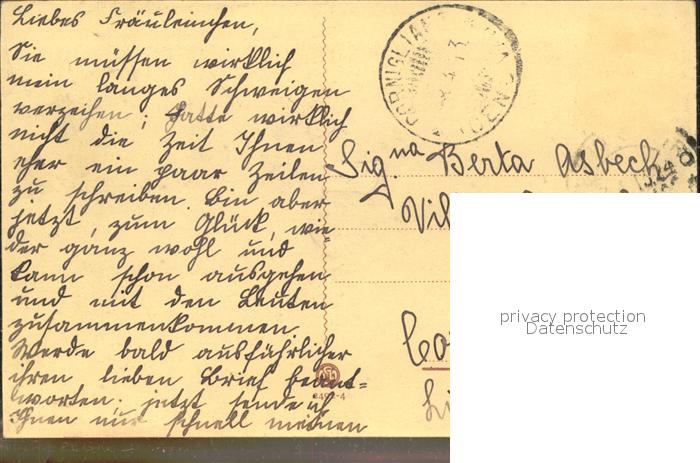 Liebes Fräuleinchen,
Sie müssen wirklich
mein langes Schweigen
verzeihen; hatte wirklich
nicht die Zeit Ihnen
eher ein paar Zeilen
zu schreiben. Bin aber
jetzt, zum Glück, wie-
der ganz wohl und
kann schon ausgehen
und mit den Leuten
zusammenkommen.
Werde bald ausführlicher
ihren lieben Brief beant=
worten. jetzt sende ich
Ihnen nur schnell meinen
CORNIGLIANO
Sig.na Berta Asbeck
privacy protection
Datenschutz